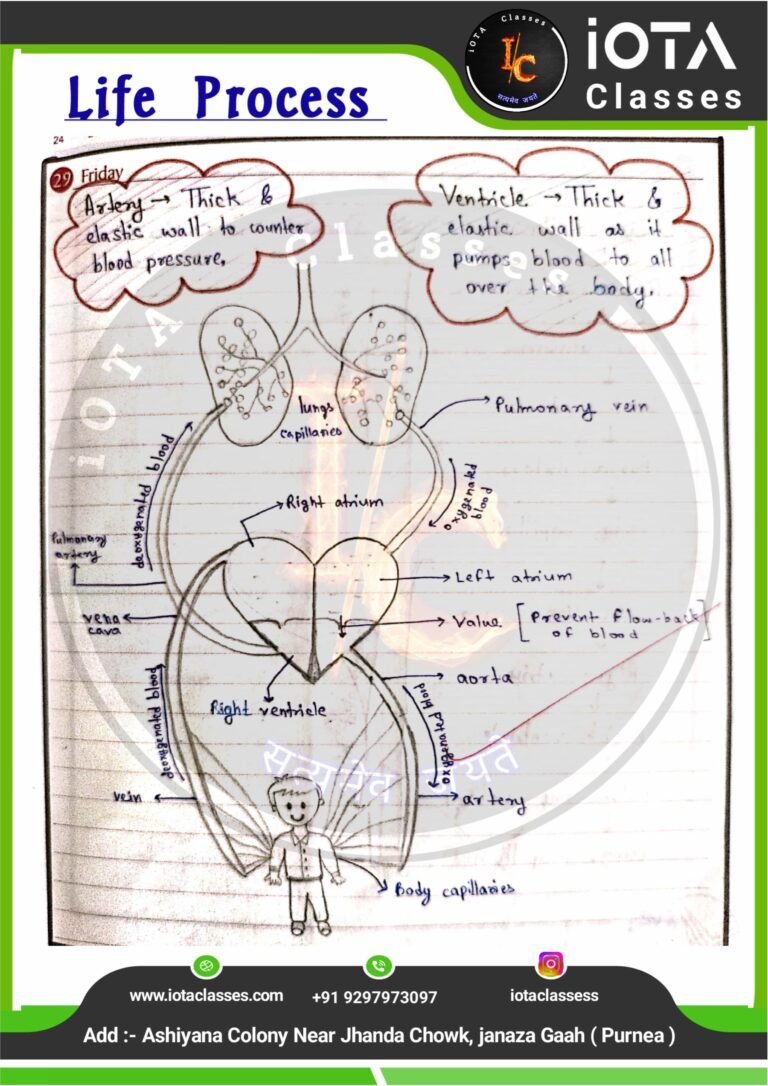 iOTA Classes
I/C
सत्यमेव जयते
iOTA
Classes
Life Process
24
29 Friday
Artery → Thick &
elastic wall to counter
blood pressure.
Ventricle → Thick &
elastic wall as it
pumps blood to all
over the body.
iOTA Classes
lungs
capillaries
Pulmonary vein
deoxygenated blood
oxygenated
blood
Right atrium
I/C
Pulmonary
artery
Left atrium
vena
cava
Value [Prevent flow-back
of blood]
aorta
Right ventricle
deoxygenated blood
oxygenated blood
सत्यमेव जयते
vein
artery
Body capillaries
www.iotaclasses.com
+91 9297973097
iotaclassess
Add :- Ashiyana Colony Near Jhanda Chowk, janaza Gaah ( Purnea )